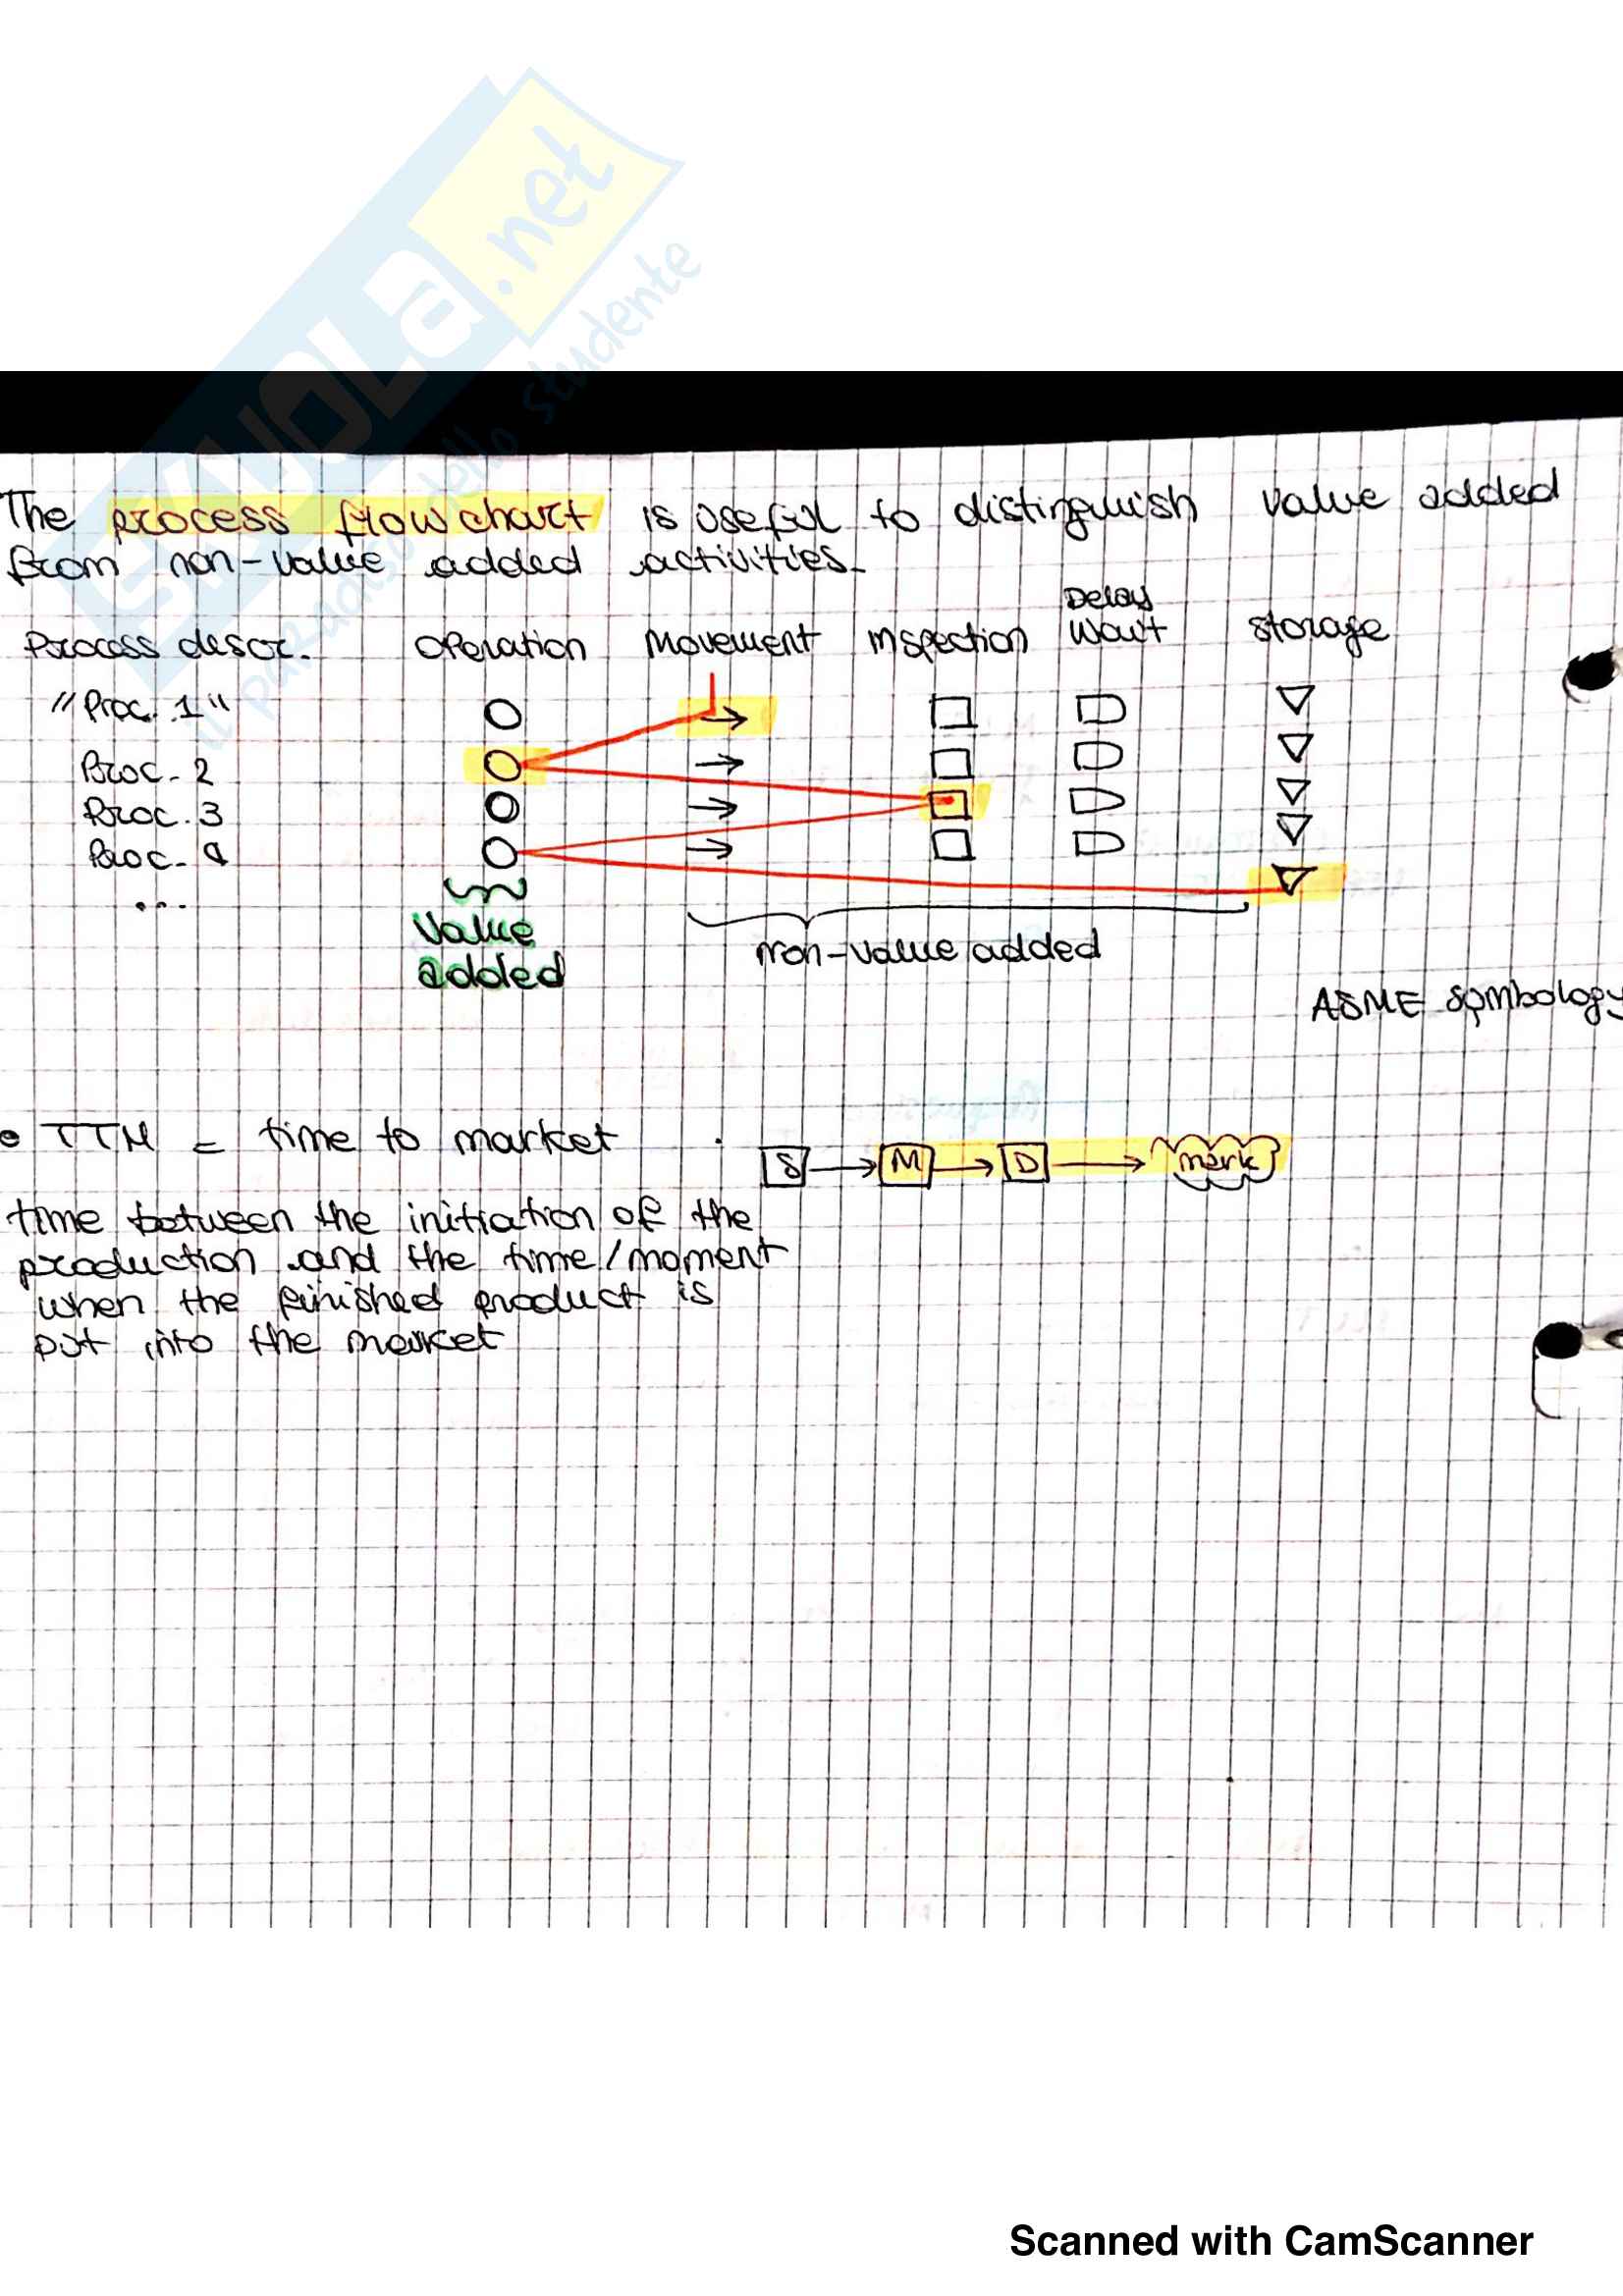 SKUOLA.net
il paradiso dello studente
The process flow chart is useful to distinguish value added
from non-value added activities.
Process descr. Operation Movement Inspection Delay Wait Storage
"Proc. 1"
Proc. 2
Proc. 3
Proc. 4
...
Value added
non-value added
ASME symbology
• TTM = time to market
S → M → D → mark
time between the initiation of the
production and the time/moment
when the finished product is
put into the market
Scanned with CamScanner